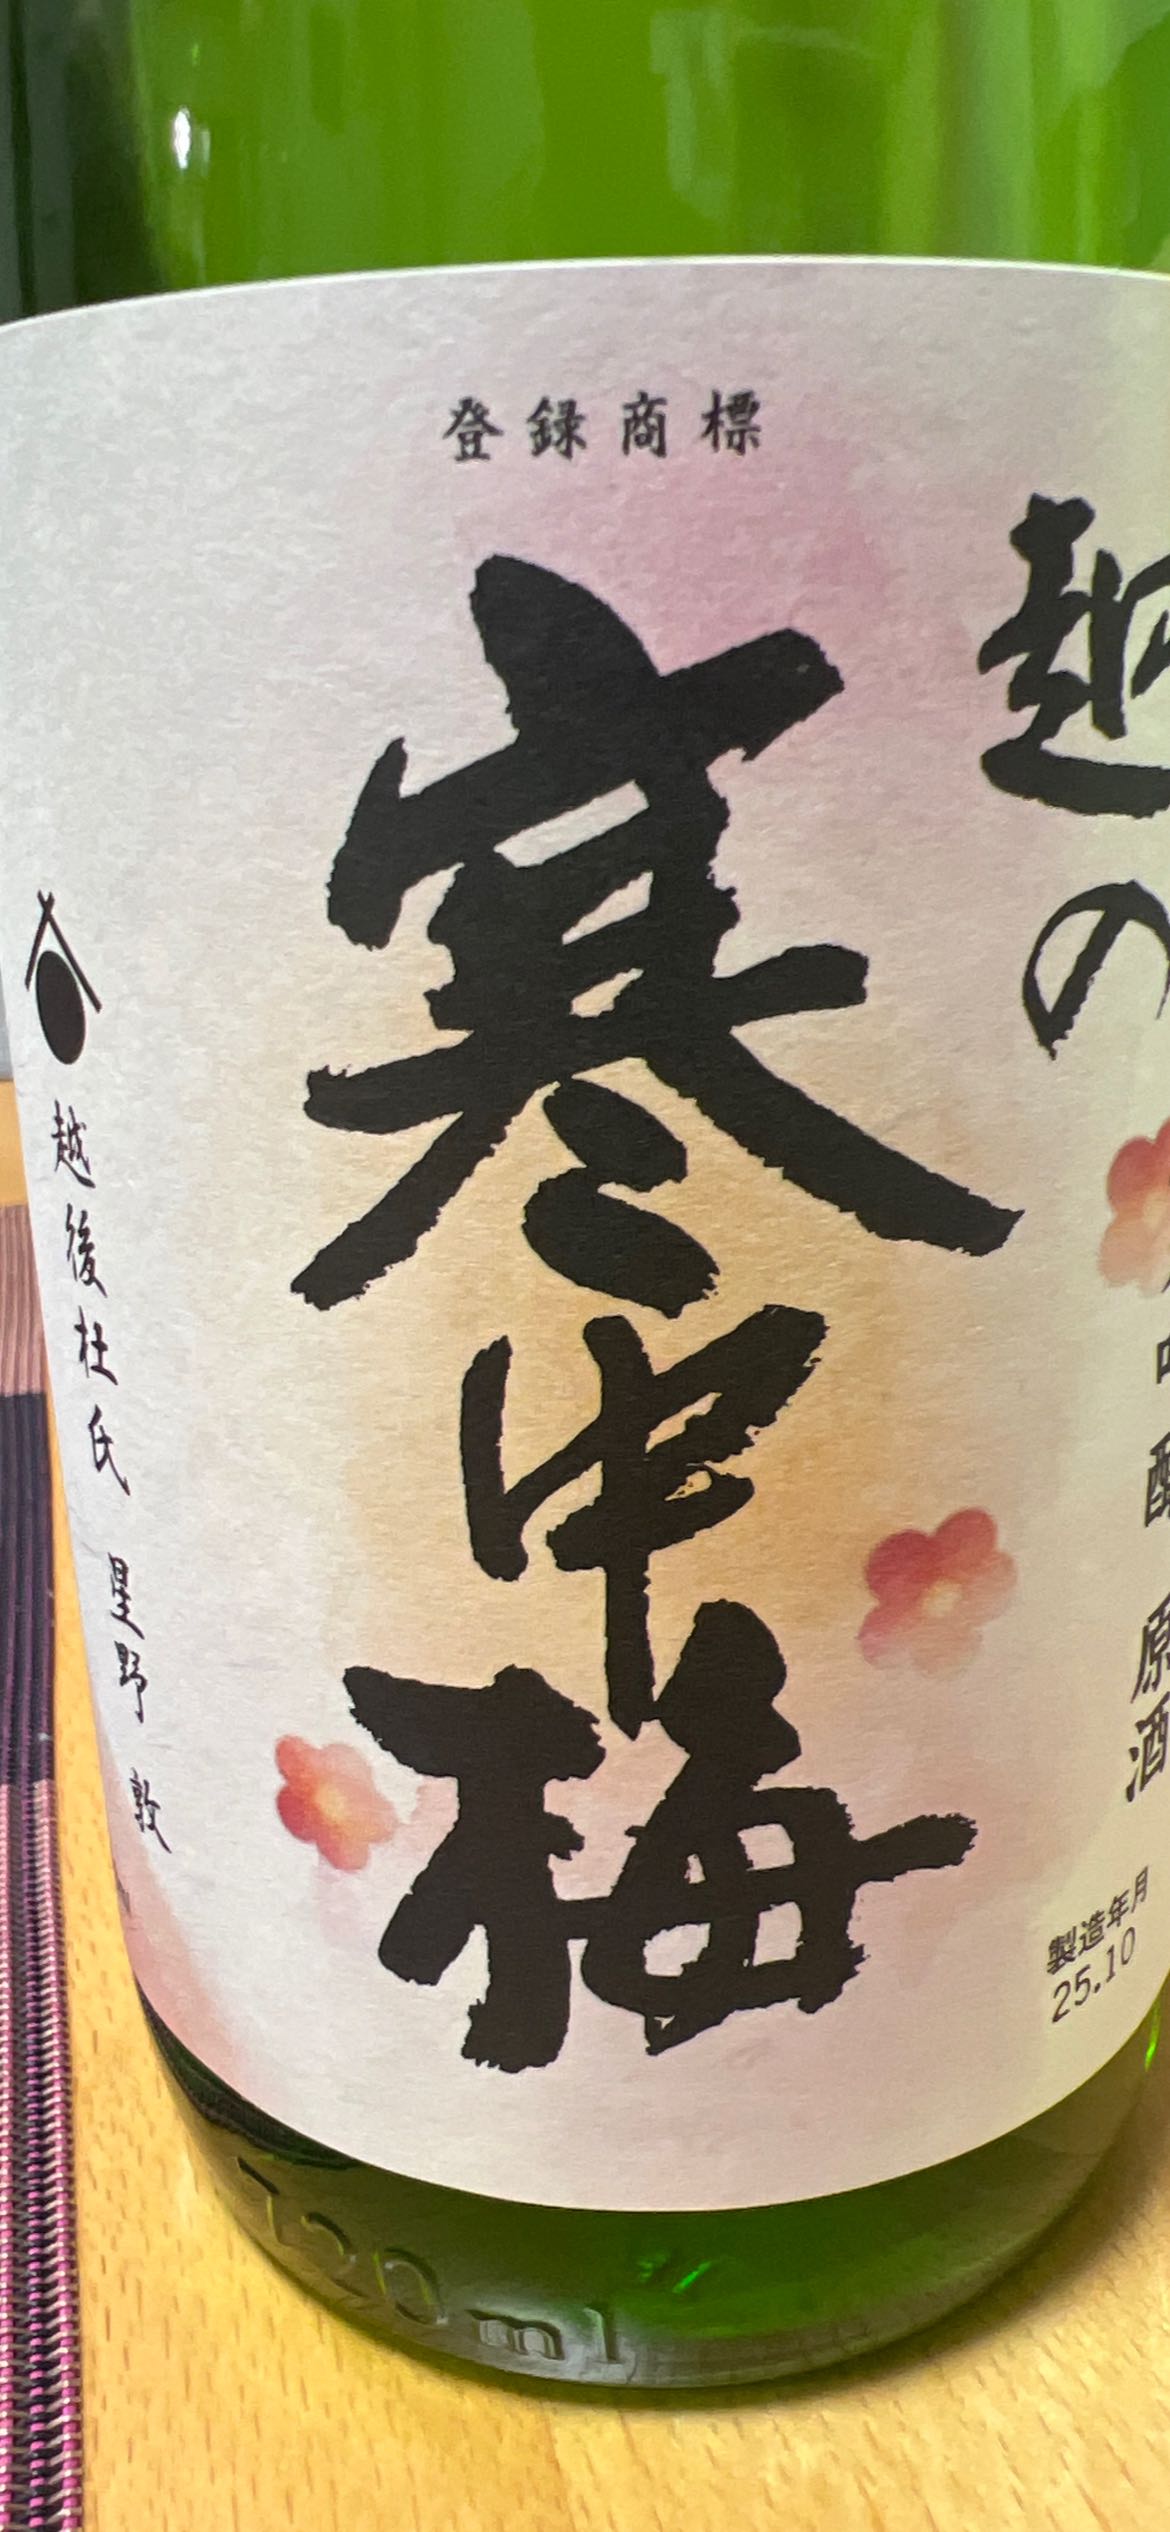 登録商標
越の
寒中梅
吟醸 原酒
製造年月
25.10
越後杜氏 星野 敦
720ml